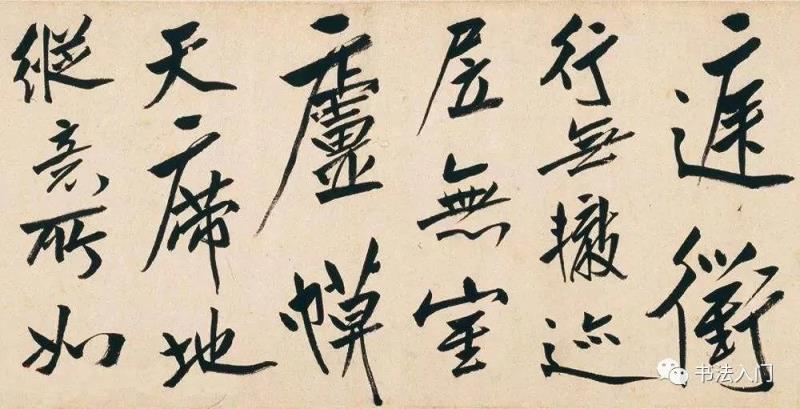 庭衢
行無撤迹
居無室
廬幙
天席地
縱意所如
书法入门